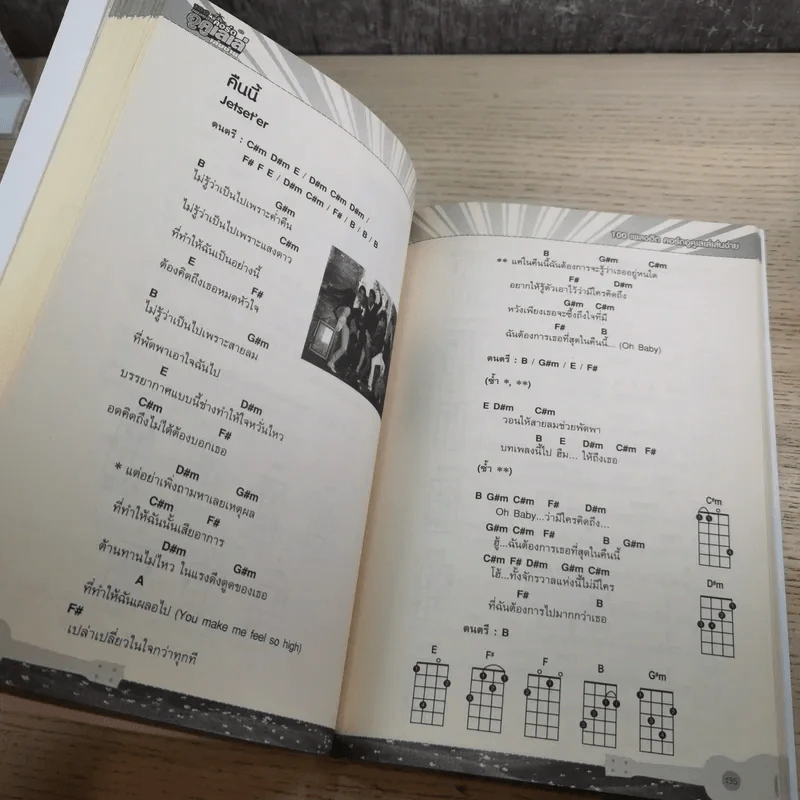 คอร์ด
อูคูเลเล่
คืนนี้
Jetset'er
ดนตรี : C#m D#m E / D#m C#m D#m /
F# F E / D#m C#m / F# / B / B / B
B
ไม่รู้ว่าเป็นไปเพราะค่ำคืน
G#m
ไม่รู้ว่าเป็นไปเพราะแสงดาว
C#m
ที่ทำให้ฉันเป็นอย่างนี้
E F#
ต้องคิดถึงเธอหมดหัวใจ
B
ไม่รู้ว่าเป็นไปเพราะสายลม
G#m
ที่พัดพาเอาใจฉันไป
E D#m
บรรยากาศแบบนี้ช่างทำให้ใจหวั่นไหว
C#m F#
อดคิดถึงไม่ได้ต้องบอกเธอ
D#m G#m
* แต่อย่าเพิ่งถามหาเลยเหตุผล
C#m F#
ที่ทำให้ฉันนั้นเสียอาการ
D#m G#m
ต้านทานไม่ไหว ในแรงดึงดูดของเธอ
A
ที่ทำให้ฉันเผลอไป (You make me feel so high)
F#
เปล่าเปลี่ยวในใจกว่าทุกที
100 เพลงฮิต คอร์ดอูคูเลเล่เล่นง่าย
B G#m C#m
** แค่ในคืนนี้ฉันต้องการจะรู้ว่าเธออยู่หนใด
F# D#m
อยากให้รู้ตัวเอาไว้ว่ามีใครคิดถึง
G#m C#m
หวังเพียงเธอจะซึ้งถึงใจที่มี
F# B
ฉันต้องการเธอที่สุดในคืนนี้... (Oh Baby)
ดนตรี : B / G#m / E / F#
(ซ้ำ *, **)
E D#m C#m
วอนให้สายลมช่วยพัดพา
B E D#m C#m F#
บทเพลงนี้ไป ฮืม... ให้ถึงเธอ
(ซ้ำ **)
B G#m C#m F# D#m
Oh Baby...ว่ามีใครคิดถึง...
G#m C#m F# B G#m
ฮู้...ฉันต้องการเธอที่สุดในคืนนี้
C#m F# D#m G#m C#m
โฮ้...ทั้งจักรวาลแห่งนี้ไม่มีใคร
F# B
ที่ฉันต้องการไปมากกว่าเธอ
ดนตรี : B
C#m
D#m
E F# F B G#m
135